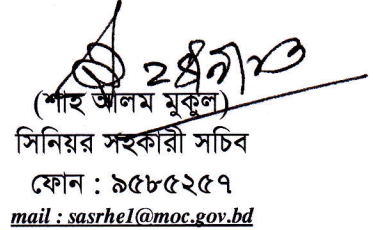 (শাহ আলম মুকুল)
সিনিয়র সহকারী সচিব
ফোন : ৯৫৮৫২৫৭
mail : sasrhe1@moc.gov.bd